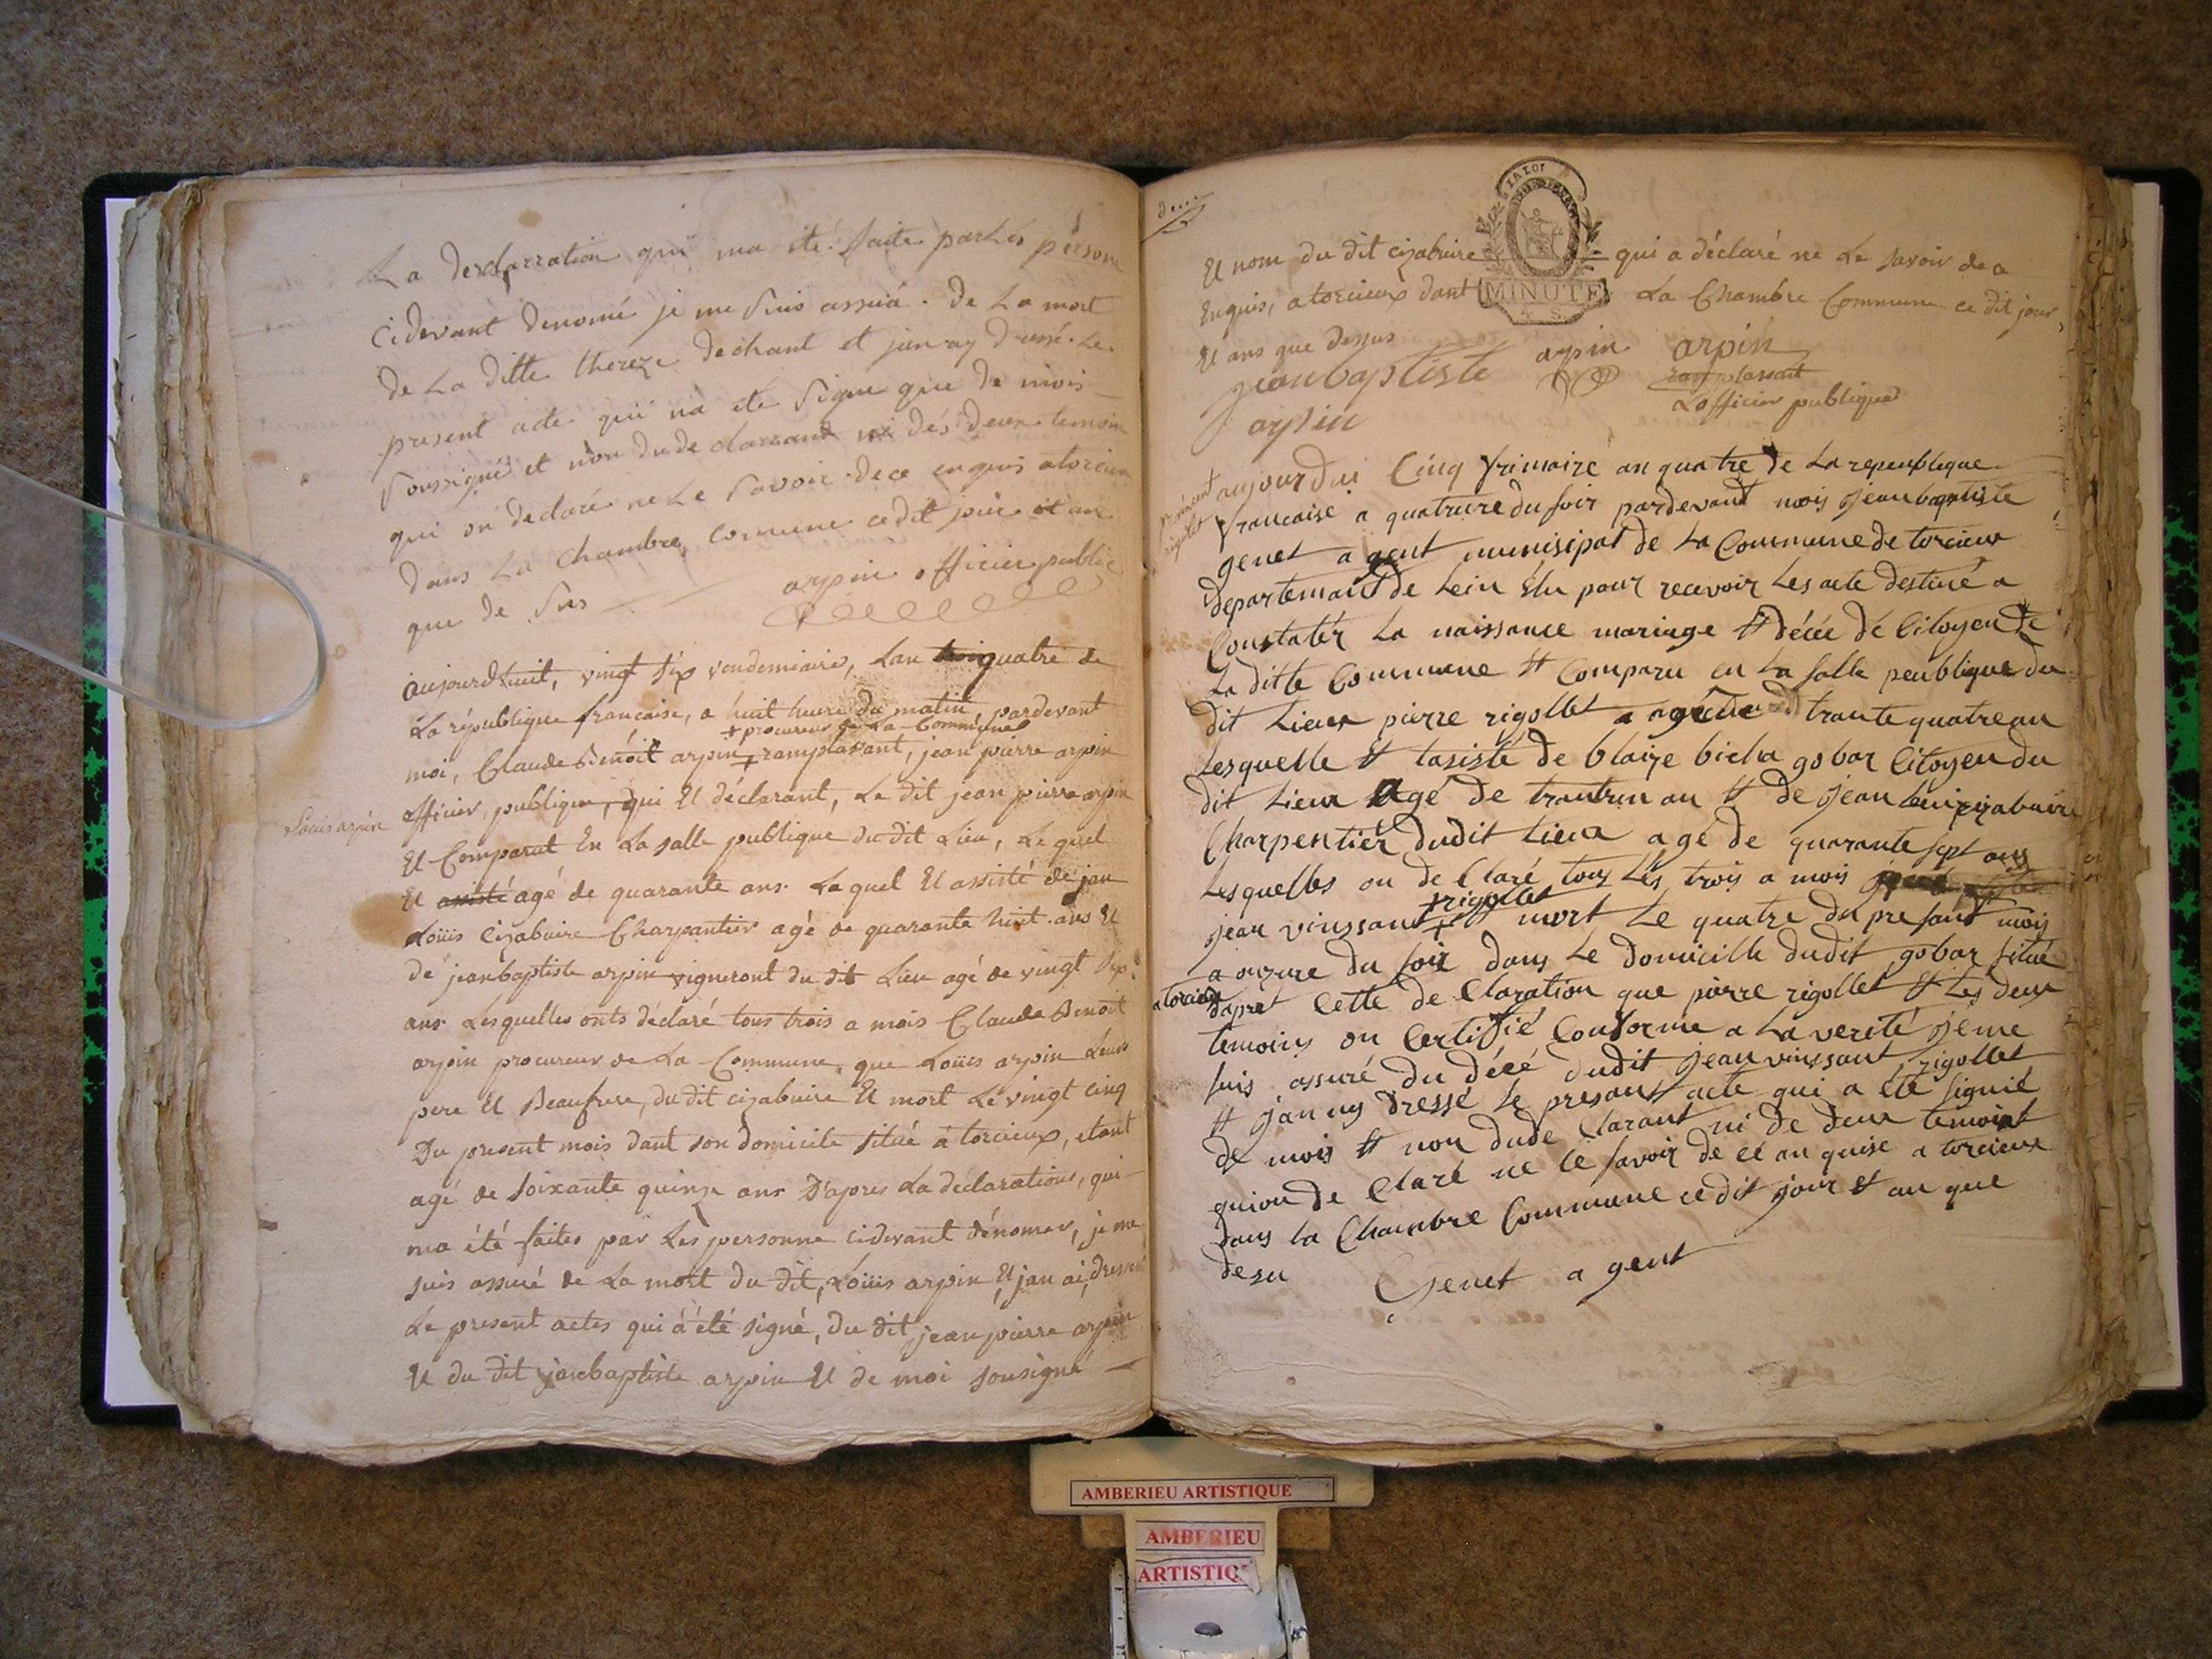 La desclarration qui ma ité faite par Les persone
cidevant denomé je me suis assuiá. de La mort
de La ditte thereze dechant et jen ay dressé. Le
present acte qui na ete signe que de mois
soussigné et non du de clarrand ni dés deux temoin
qui on declaré ne Le savoir. de ce enquis atorcieu
dans La Chambre comune cedit jour et an
que de sus arpin officier public
aujourdhuit, vingt six vendemiaire, Lan trois quatre de
La république francaise, a huit heure du matin pardevant
+ procureur de La Commune
moi, Claude Benoit arpin + ramplasant, jean pierre arpin
officier publique, qui Et déclarant, Le dit jean pierre arpin
Louis arpin
Et Comparut En La salle publique du dit Lieu, Le quel
Et assisté agé de quarante ans. Laquel Et assisté de jan
Loüis cizabuire Charpantier agé de quarante huit ans Et
de jeanbaptiste arpin vigneront du dit Lieu agé de vingt sep.
ans. Lesquelles onts déclaré tous trois a mois Claude Benoit
arpin procureur de La Commune, que Loüis arpin Leurs
pere Et Beaufrere, du dit cizabuire Et mort Le vingt cinq
Du present mois dant son domicile situé à torcieux, etant
agé de soixante quinze ans D'apres La déclarations, qui
ma été faites par Les personne cidevant dénomer, je me
suis assuré de La mort du dit, Loüis arpin, Et jan ai, dressé
Le present actes qui à été signé, du dit jean pierre arpin
Et du dit janbaptiste arpin Et de moi sousigné
deux
LA LOI
MINUTE
4 S.
Et nom du dit cizabuire qui a déclaré ne Le savoir de a
Enquis, a torcieux dant La Chambre Commune ce dit jour,
Et ans que Dessus
jeanbaptiste arpin arpin
ramplassant
arpin Lofficier publique
aujourdui Cinq frimaire an quatre de La repeublique
rigolet
francaise a quatrure du soir pardevant mois jeanbaptiste
genet agent munisipal de La Commune de torcieux
departemant de Lein Elu pour recevoir Les acte destiné a
Constatér La naissance mariage Et décée de Citoyen de
La ditte Commune Et Comparu en La salle peublique du
dit Lieux pierre rigollet agé de trante quatre an
Lesquelle Et lasisté de blaize bicha gobar Citoyen du
dit Lieux agé de trantun an Et de jean Loui cizabuire
Charpentiér dudit Lieux agé de quarante sept ans
Lesquelles on de Claré tous Lés trois a mois
+ rigollet
jean vinssant + Et mort Le quatre du presant mois
a onzure du soir dans Le Domicille dudit gobar situé
a torcieux dapret Cette de Claration que pierre rigollet Et Les deux
temoins on Certifié Conforme a La verité je me
suis assuré du décé dudit jean vinssant rigollet
Et jan ay dressé Le presant acte qui a été signié
de mois Et non dude Clarant ni de deux temoint
quion de Claré ne Le savoir de ce an quise a torcieux
dans La Chambre Commune ce dit jour Et an que
desu Genet agent
AMBERIEU ARTISTIQUE
AMBERIEU
ARTISTIQ